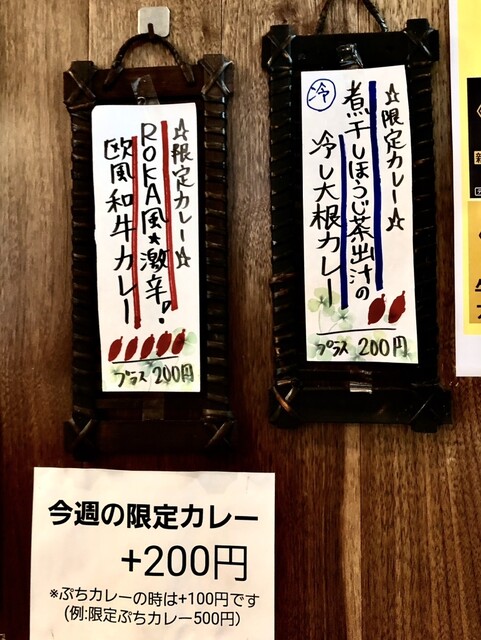 冷
☆限定カレー☆
煮干しほうじ茶出汁の
冷し大根カレー
プラス 200円
☆限定カレー☆
ROKA風★激辛!
欧風和牛カレー
プラス 200円
今週の限定カレー
+200円
※ぷちカレーの時は+100円です
(例:限定ぷちカレー500円)